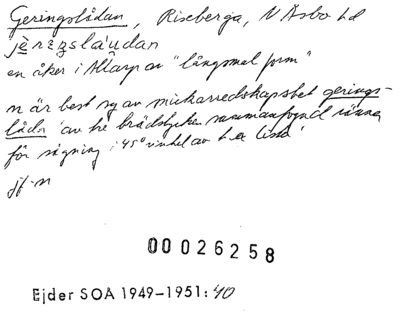 Geringslådan, Riseberga, N Åsbo hd
jè̱rɛŋsla'u̱dan
en åker i Allarp av "långsmal form"
n är best sg av snickarredskapsbet gerings-
låda 'av tre brädstycken sammanfogad ränna
för sågning i 45° vinkel av t.ex. list'
jf -n
00026258
Ejder SOA 1949-1951:40